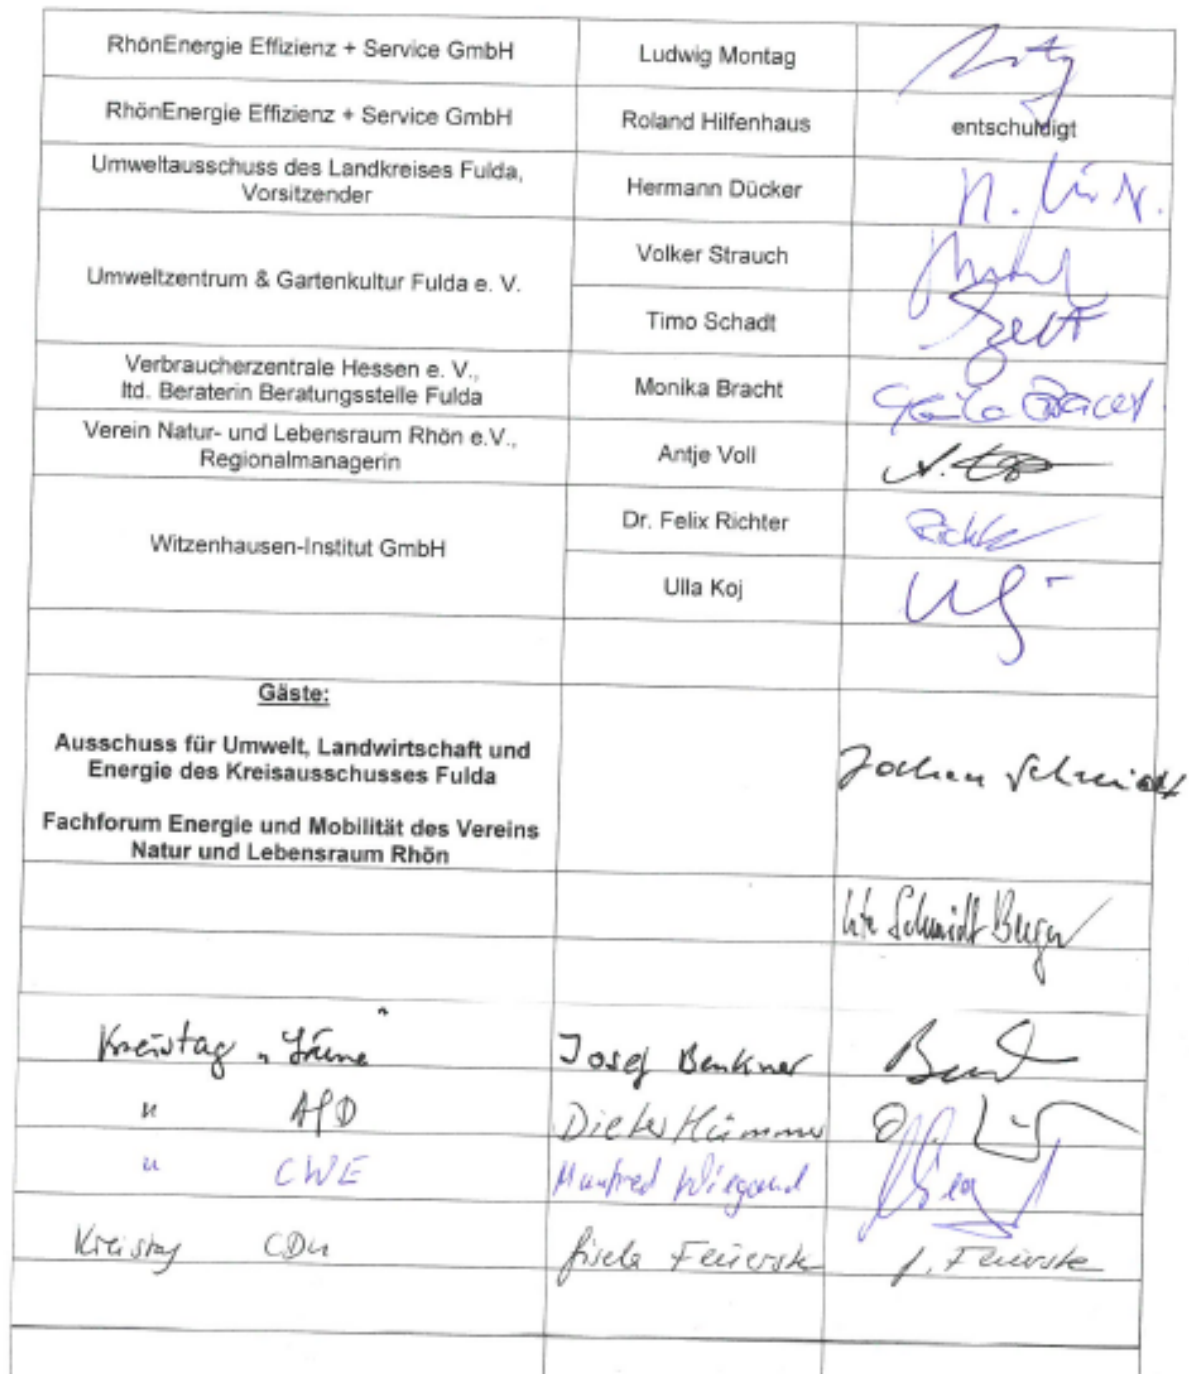 RhönEnergie Effizienz + Service GmbH Ludwig Montag
RhönEnergie Effizienz + Service GmbH Roland Hilfenhaus entschuldigt
Umweltausschuss des Landkreises Fulda,
Vorsitzender Hermann Dücker
Umweltzentrum & Gartenkultur Fulda e. V. Volker Strauch
Timo Schadt
Verbraucherzentrale Hessen e. V.,
ltd. Beraterin Beratungsstelle Fulda Monika Bracht
Verein Natur- und Lebensraum Rhön e.V.,
Regionalmanagerin Antje Voll
Witzenhausen-Institut GmbH Dr. Felix Richter
Ulla Koj
Gäste:
Ausschuss für Umwelt, Landwirtschaft und
Energie des Kreisausschusses Fulda
Jochen Schmidt
Fachforum Energie und Mobilität des Vereins
Natur und Lebensraum Rhön
Ute Schmidt Berger
Kreistag "Grüne" Josef Benkner
" AfD Dieter
" CWE Manfred Wiegand
Kreistag CDU Gisela